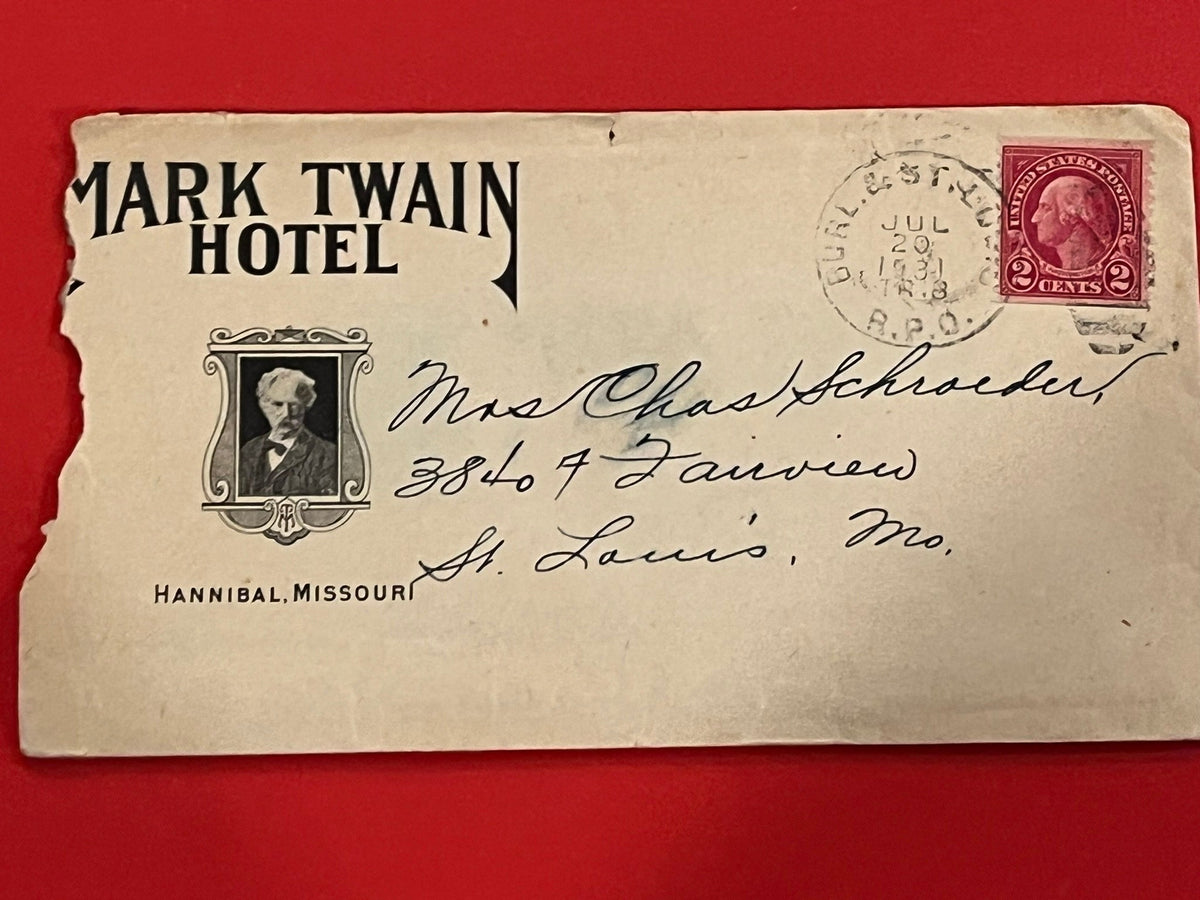 MARK TWAIN
HOTEL
HANNIBAL, MISSOURI
BURL. & ST. LO
JUL
20
1931
TR 8
R.P.O.
UNITED STATES POSTAGE
2 CENTS 2
Mrs Chas Schroeder,
3840 Fairview
St. Louis, Mo.